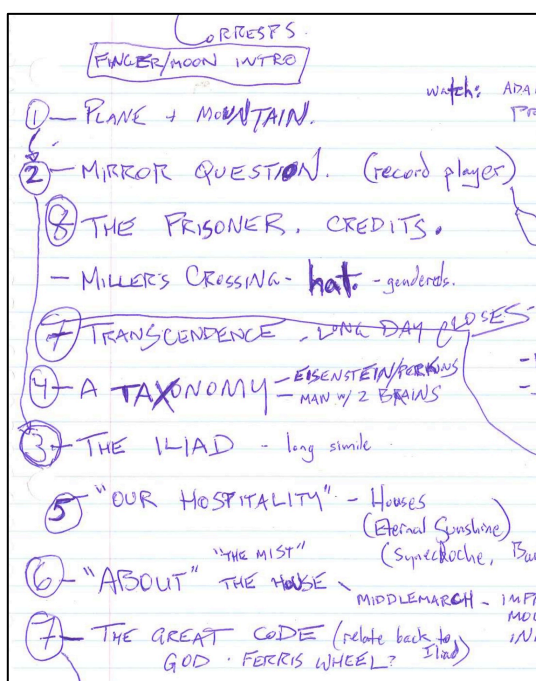 CORRESPS.
FINGER/MOON INTRO
watch:
① — PLANE + MOUNTAIN.
② — MIRROR QUESTION. (record player)
⑧ THE PRISONER. CREDITS.
— MILLER'S CROSSING - hat. - gendereds.
⑦ TRANSCENDENCE - LONG DAY CLOSES -
④ - A TAXONOMY - EISENSTEIN/PERKINS
- MAN W/ 2 BRAINS
③ - THE ILIAD - long simile
⑤ "OUR HOSPITALITY" - Houses
(Eternal Sunshine)
(Synecdoche,
"THE MIST"
⑥ - "ABOUT" THE HOUSE
MIDDLEMARCH -
⑦ - THE GREAT CODE (relate back to Iliad)
GOD · FERRIS WHEEL?